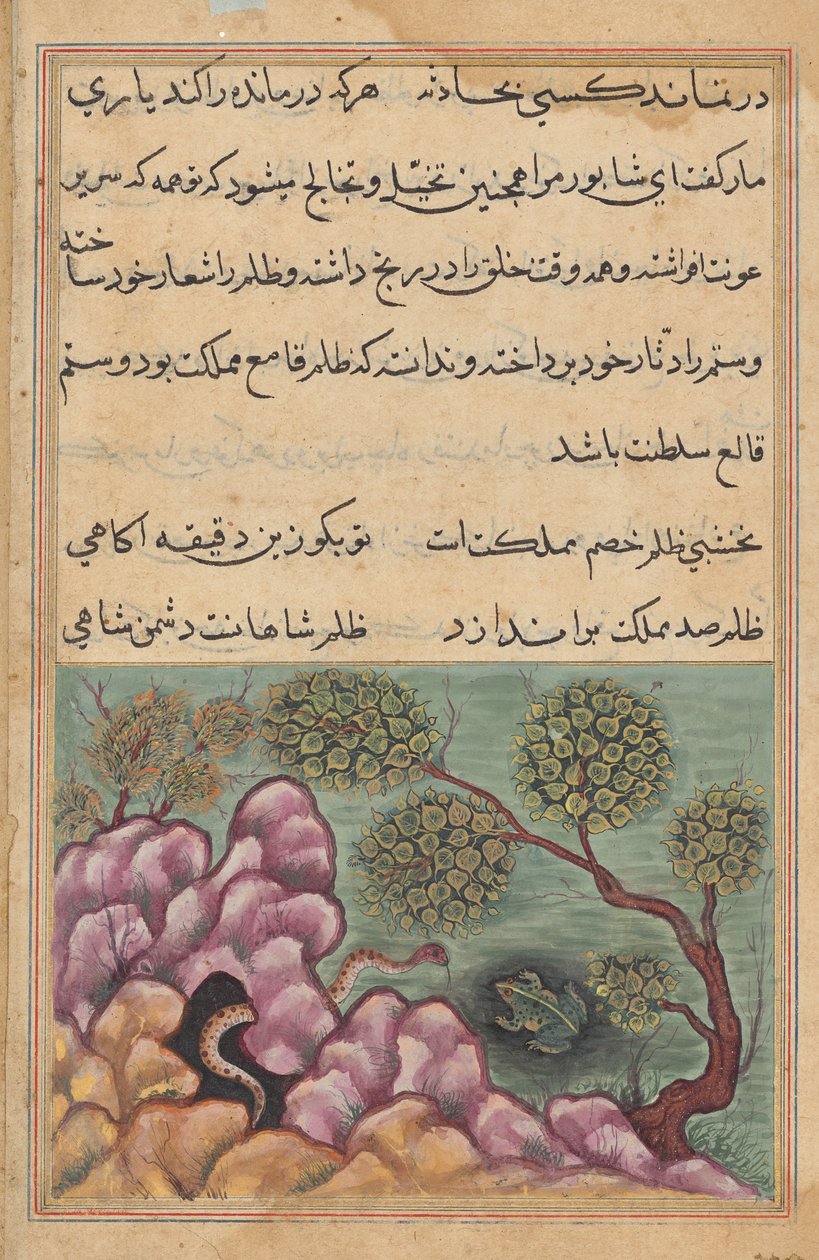 درنماند کسی بحادثه هرکه درمانده را کند یاری
مار کفت ای شابور مرا همچنین تخیّل و تخالج میشود که تو همه که سریر
عونت افراشته و همه وقت خلق را در رنج داشته و ظلم را شعار خود ساخته
وستم را دثّار خود برداخته و ندانسته که ظلم قامع مملکت بود و ستم
قالع سلطنت باشد
نخشبی ظلم خصم مملکت است تو بکو زین دقیقه اکاهی
ظلم صد مملکت براندازد ظلم شاهانست دشمن شاهی